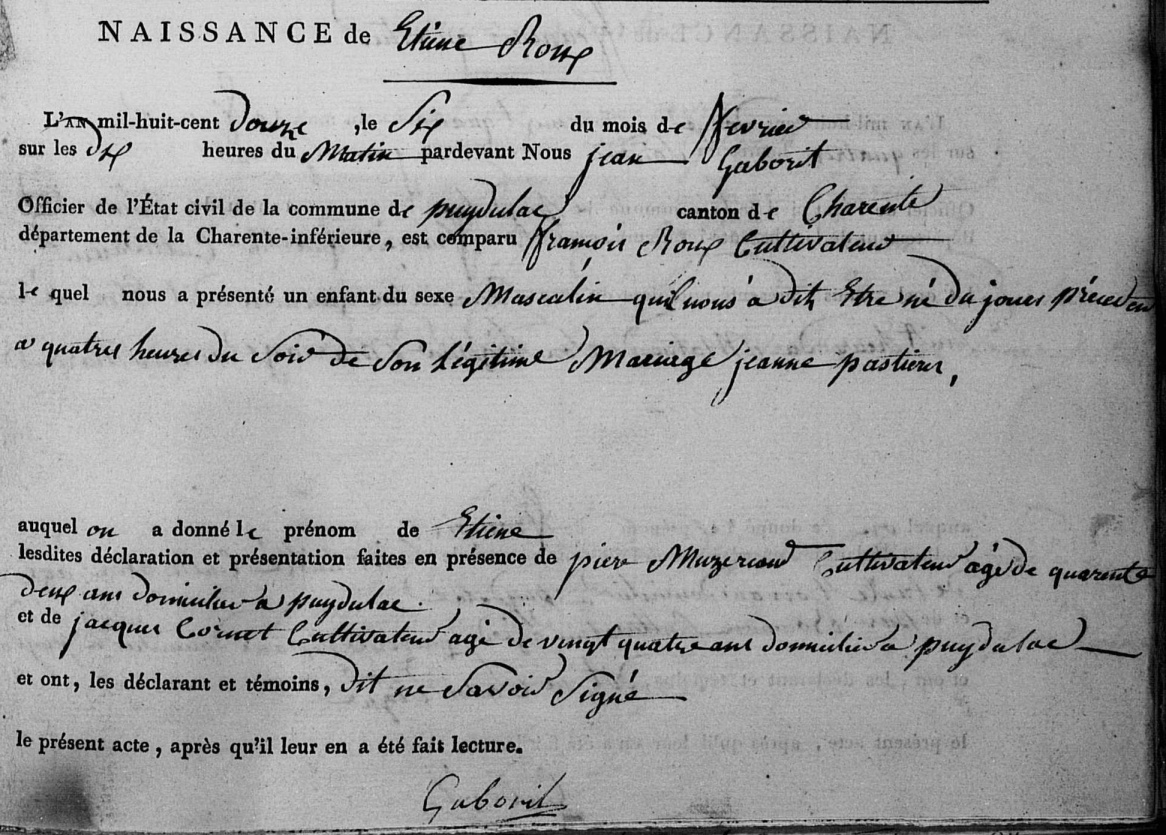 NAISSANCE de Etiene Roux
L'AN mil-huit-cent Douze, le Six du mois de ffevrier
sur les Dix heures du Matin pardevant Nous jean Gaborit
Officier de l'État civil de la commune de puydulac canton de Charente
département de la Charente-inférieure, est comparu ffrançois Roux Cultivateur
le quel nous a présenté un enfant du sexe Masculin quil nous a dit Etre né du jour précedent
a quatres heures du Soir de Son légitime Mariage jeanne pastier,
auquel on a donné le prénom de Etiene
lesdites déclaration et présentation faites en présence de piere Cultivateur agé de quarente
deux ans domicilier a puydulac
et de jacques Cornet Cultivateur agé de vingt quatre ans domicilier a puydulac
et ont, les déclarant et témoins, dit ne Savoir Signé
le présent acte, après qu'il leur en a été fait lecture.
Gaborit